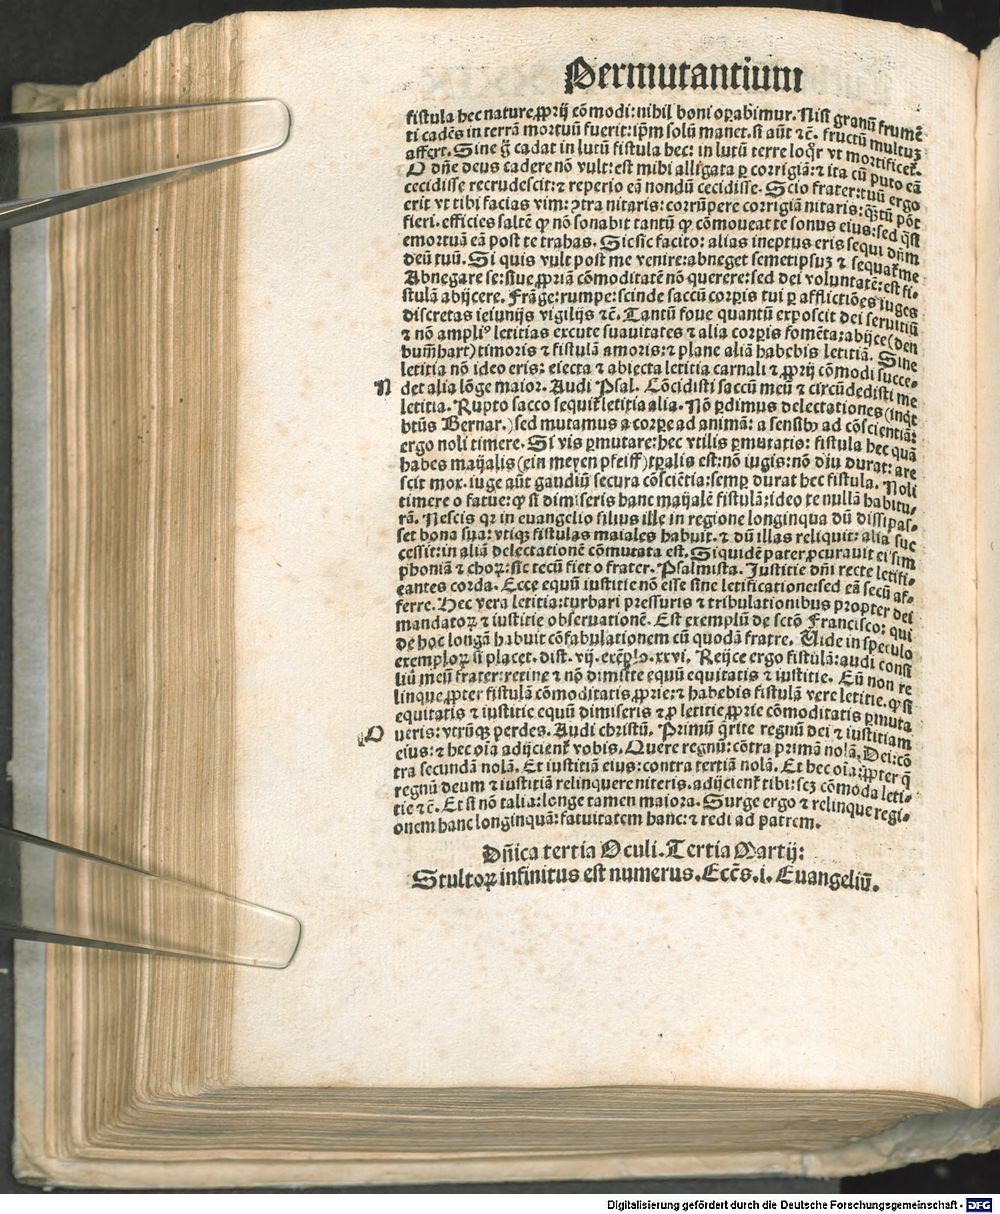 Permutantium
fistula hec nature ꝓprij cōmodi: nihil boni oꝑabimur. Nisi granū frumē
ti cadēs in terrā mortuū fuerit: ip̄m solū manet. si aūt ⁊c̄. fructū multuꝫ
affert. Sine ḡ cadat in lutū fistula hec: in lutū terre loq̄r vt mortificet̄.
O dn̄e deus cadere nō vult: est mihi alligata ꝑ corrigiā: ⁊ ita cū puto eā
cecidisse recrudescit: ⁊ reperio eā nondū cecidisse. Scio frater: tuū ergo
erit vt tibi facias vim: ꝯtra nitaris: corrūpere corrigiā nitaris: q̄ꝫtū pōt
fieri. efficies saltē ꝙ nō sonabit tantū ꝙ cōmoueat te sonus eius: sed q̄si
emortuā eā post te trahas. Sic sic facito: alias ineptus eris sequi dn̄m
deū tuū. Si quis vult post me venire: abneget semetipsuꝫ ⁊ sequat̄ me
Abnegare se: siue ꝓpriā cōmoditatē nō querere: sed dei voluntatē: est fi⸗
stulā abijcere. Frāge: rumpe: scinde saccū corꝑis tui ꝑ afflictiōes iuges
discretas ieiunijs vigilijs ⁊c̄. Tantū foue quantū exposcit dei seruitiū
⁊ nō ampliꝰ letitias excute suauitates ⁊ alia corꝑis fomēta: abijce (den
bum̄hart) timoris ⁊ fistulā amoris: ⁊ plane aliā habebis letitiā. Sine
letitia nō ideo eris: eiecta ⁊ abiecta letitia carnali ⁊ ꝓprij cōmodi succe⸗
N det alia lōge maior. Audi Psal. Cōcidisti saccū meū ⁊ circūdedisti me
letitia. Rupto sacco sequit̄ letitia alia. Nō ꝑdimus delectationes (inqt
btūs Bernar.) sed mutamus a corꝑe ad animā: a sensibꝫ ad cōscientiā:
ergo noli timere. Si vis ꝑmutare: hec vtilis ꝑmutatis: fistula hec quā
habes maijalis (ein meyen pfeiff) tꝑalis est: nō iugis: nō diu durat: are
scit mox. iuge aūt gaudiū secura cōsciētia: semꝑ durat hec fistula. Noli
timere o fatue: ꝙ si dimiseris hanc maijalē fistulā: ideo te nullā habitu⸗
rā. Nescis qꝛ in euangelio filius ille in regione longinqua dū dissipas⸗
set bona sua: vtiqꝫ fistulas maiales habuit. ⁊ dū illas reliquit: alia suc
cessit: in aliā delectationē cōmutata est. Siquidē pater ꝓcurauit ei sim
phoniā ⁊ choꝝ: sic tecū fiet o frater. Psalmista. Iustitie dn̄i recte letifi⸗
cantes corda. Ecce equū iustitie nō esse sine letificatione: sed eā secū af⸗
ferre. Hec vera letitia: turbari pressuris ⁊ tribulationibus propter dei
mandatoꝝ ⁊ iustitie obseruationē. Est exemplū de sctō Francisco: qui
de hoc longā habuit cōfabulationem cū quodā fratre. Uide in speculo
exemploꝝ si placet. dist. vij. exēplo. xxvi. Reijce ergo fistulā: audi consi
liū meū frater: retine ⁊ nō dimitte equū equitatis ⁊ iustitie. Eū non re
linque ꝓpter fistulā cōmoditatis ꝓprie: ⁊ habebis fistulā vere letitie. ꝙ si
equitatis ⁊ iustitie equū dimiseris ⁊ ꝓ letitie ꝓprie cōmoditatis ꝑmuta
O ueris: vtrūqꝫ perdes. Audi christū. Primū q̄rite regnū dei ⁊ iustitiam
eius: ⁊ hec oīa adijcient̄ vobis. Quere regnū: cōtra primā nolā. Dei: cō
tra secundā nolā. Et iustitiā eius: contra tertiā nolā. Et hec oīa: ꝓpter q̄
regnū deum ⁊ iustitiā relinquere niteris. adijcient̄ tibi: scꝫ cōmoda leti⸗
tie ⁊c̄. Et si nō talia: longe tamen maiora. Surge ergo ⁊ relinque regi⸗
onem hanc longinquā: fatuitatem hanc: ⁊ redi ad patrem.
Dn̄ica tertia Oculi. Tertia Martij:
Stultoꝝ infinitus est numerus. Eccēs. i. Euangeliū.
Digitalisierung gefördert durch die Deutsche Forschungsgemeinschaft - DFG